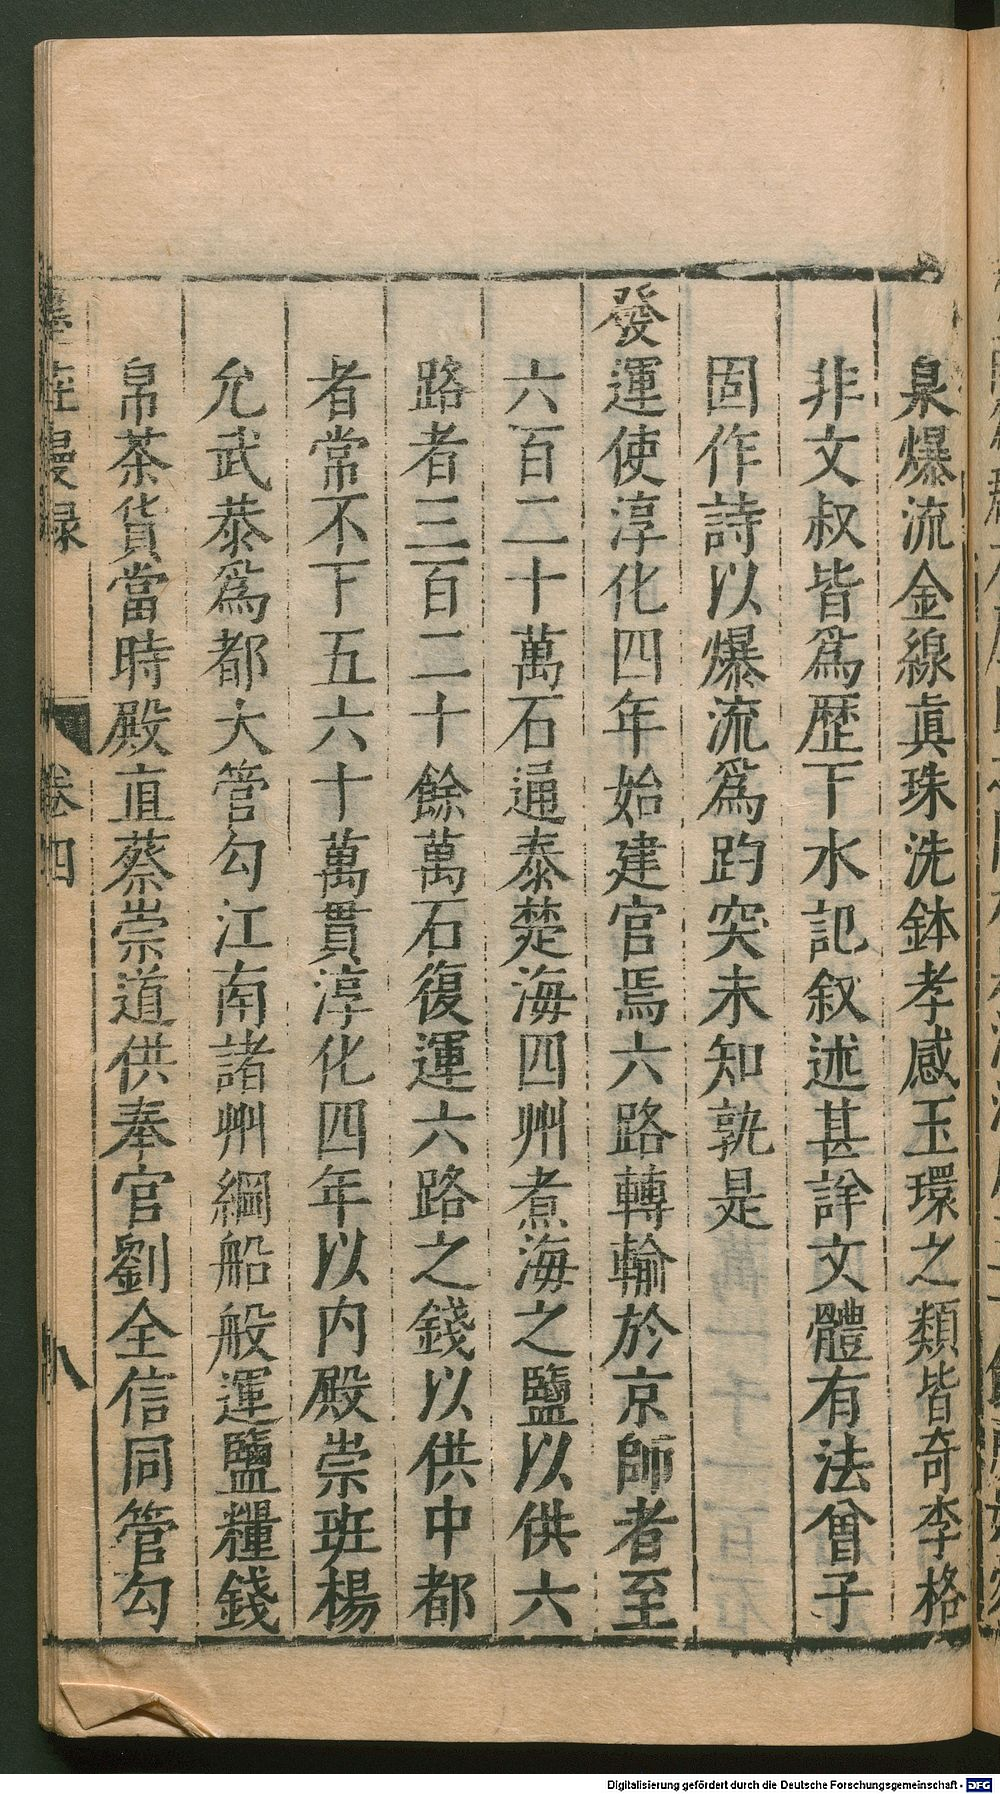 泉爆流金線眞珠洗鉢孝感玉環之類皆奇李格
非文叔皆爲歷下水記叙述甚詳文體有法曾子
固作詩以爆流爲趵突未知孰是
發運使淳化四年始建官焉六路轉輸於京師者至
六百二十萬石通泰楚海四州煮海之鹽以供六
路者三百二十餘萬石復運六路之錢以供中都
者常不下五六十萬貫淳化四年以内殿崇班楊
允武恭爲都大管勾江南諸州綱船般運鹽糧錢
帛茶貨當時殿直蔡崇道供奉官劉全信同管勾
墨莊漫録 卷四 八
Digitalisierung gefördert durch die Deutsche Forschungsgemeinschaft - DFG